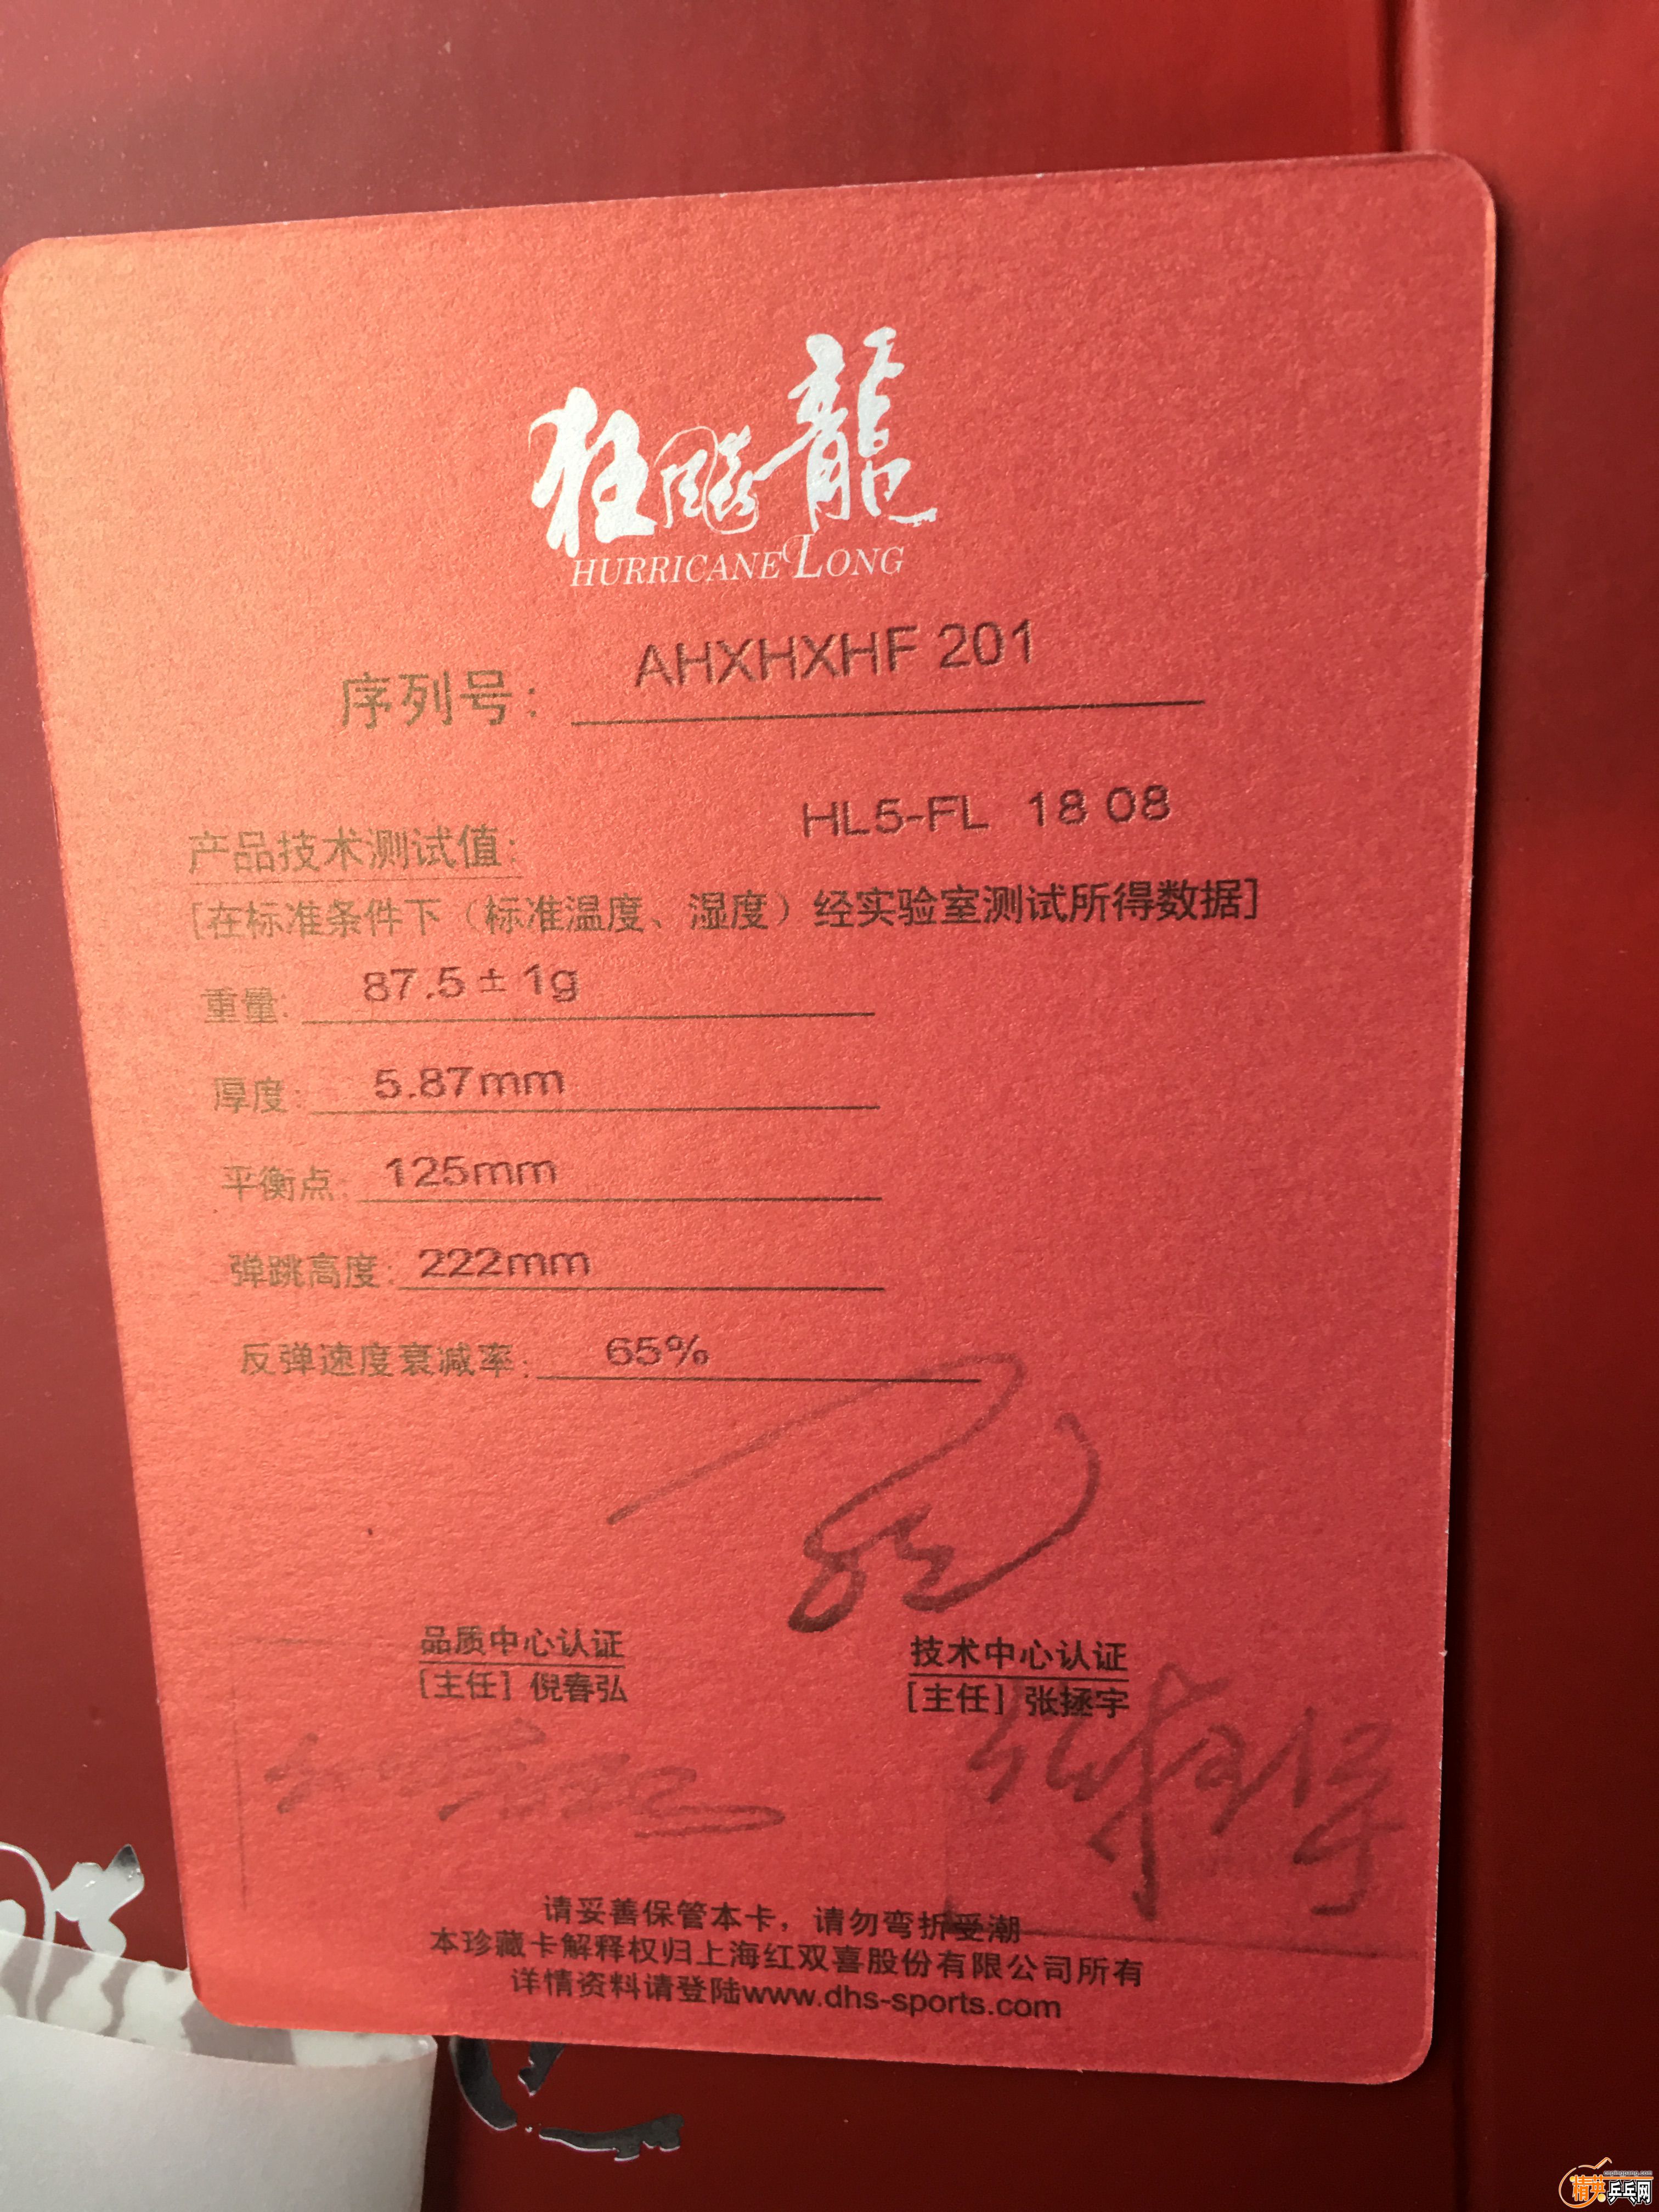 狂飚龍
HURRICANE LONG
序列号： AHXHXHF 201
产品技术测试值： HL5-FL 18 08
[在标准条件下（标准温度、湿度）经实验室测试所得数据]
重量: 87.5±1g
厚度: 5.87mm
平衡点: 125mm
弹跳高度: 222mm
反弹速度衰减率: 65%
品质中心认证
[主任] 倪春弘
技术中心认证
[主任] 张拯宇
请妥善保管本卡，请勿弯折受潮
本珍藏卡解释权归上海红双喜股份有限公司所有
详情资料请登陆www.dhs-sports.com
精英乒乓网